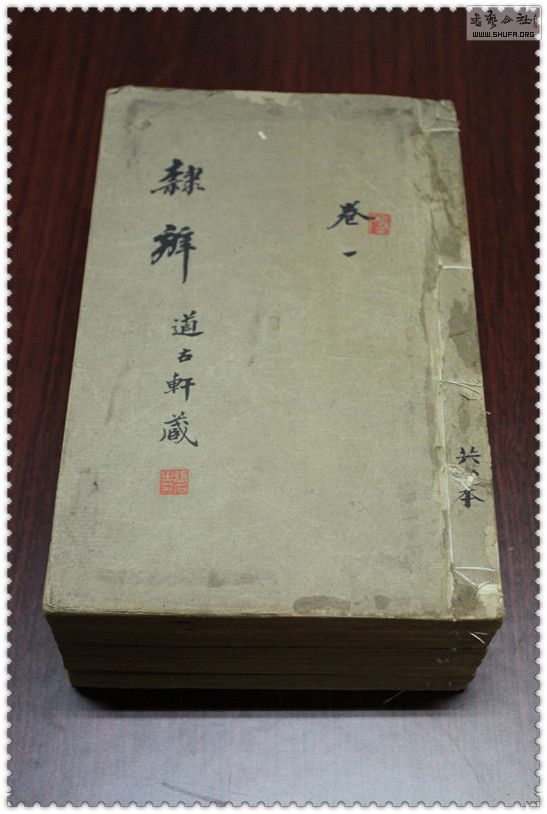 卷一
隸辨
道古軒藏
共八本
书艺公社
WWW.SHUFA.ORG